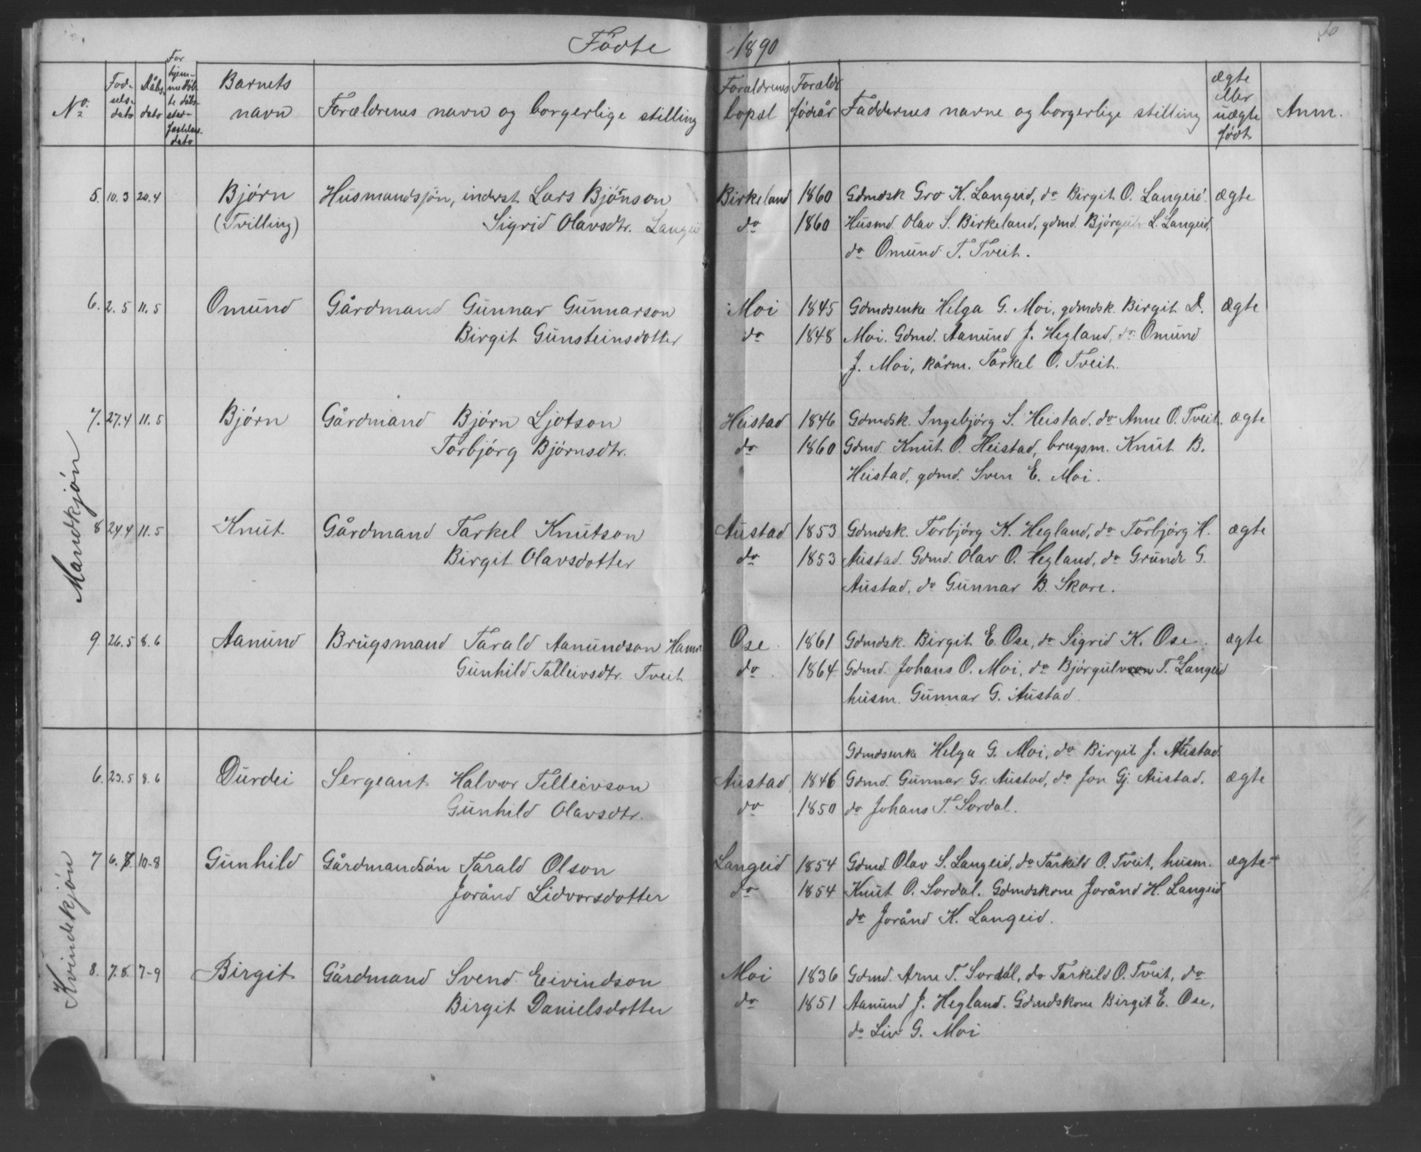 Fødte 1890
No.
Fødselsdato
Dåbsdato
Barnets navn
Forældrenes navn og borgerlige stilling
Forældrenes bopæl
Forældr. fødeår
Faddernes navne og borgerlige stilling
ægte eller uægte født
Anm.
Mandkjøn
5. 10.3 20.4 Bjørn Husmandsjøn, inderst Lars Bjønson Birkeland 1860 Gdmdsk Gro K. Langeid, do Birgit O. Langeid. ægte
(Tvilling) Sigrid Olavsdtr. Langeid do 1860 Husmd. Olav S. Birkeland, gdmd. Bjørgulv L. Langeid,
do Omund T. Tveit.
6. 2.5 11.5 Omund Gårdmand Gunnar Gunnarson Moi 1845 Gdmdsenka Helga G. Moi, gdmdsk Birgit D. ægte
Birgit Gunsteinsdotter do 1848 Moi. Gdmd. Aanund J. Hegland, do Omund
J. Moi, kårm. Tarkel O. Tveit.
7. 27.4 11.5 Bjørn Gårdmand Bjørn Ljotson Heistad 1846 Gdmdsk. Ingebjørg S. Heistad. do Anne O. Tveit. ægte
Torbjørg Bjørnsdtr. do 1860 Gdmd. Knut O. Heistad, brugsm. Knut B.
Heistad, gdmd. Sven E. Moi.
8 24.4 11.5 Knut Gårdmand Tarkel Knutson Austad 1853 Gdmdsk. Torbjørg K. Hegland, do Torbjørg H. ægte
Birgit Olavsdotter do 1853 Austad. Gdmd. Olav O. Hegland, do Grunde G.
Austad, do Gunnar B. Skore.
9 26.5 8.6 Aanund Brugsmand Tarald Aanundson Ose 1861 Gdmdsk. Birgit E. Ose, do Sigrid K. Ose. ægte
Gunhild Talleivsdtr. Tveit do 1864 Gdmd. Johans O. Moi, do Bjørgulv T. Langeid
husm. Gunnar G. Austad.
Kvindekjøn
Gdmdsenka Helga G. Moi, do Birgit J. Austad.
6. 23.5 8.6 Durdei Sergeant Halvor Tilleivson Austad 1846 Gdmd. Gunnar Gr. Austad, do Jon Gj. Austad, ægte
Gunhild Olavsdtr. do 1850 do Johans T. Sordal.
7 6.8 10-8 Gunhild Gårdmandsøn Tarald Olson Langeid 1854 Gdmd. Olav S. Langeid, do Tarkild O. Tveit, husm. ægte
Jorånd Lidvorsdotter do 1854 Knut O. Sordal. Gdmdskone Jorånd H. Langeid
do Jorånd K. Langeid.
8. 7.8 7-9 Birgit Gårdmand Svend Eivindson Moi 1836 Gdmd. Arne T. Sordal, do Tarkild O. Tveit, do
Birgit Danielsdotter do 1851 Aanund J. Hegland. Gdmdskone Birgit E. Ose,
do Liv G. Moi